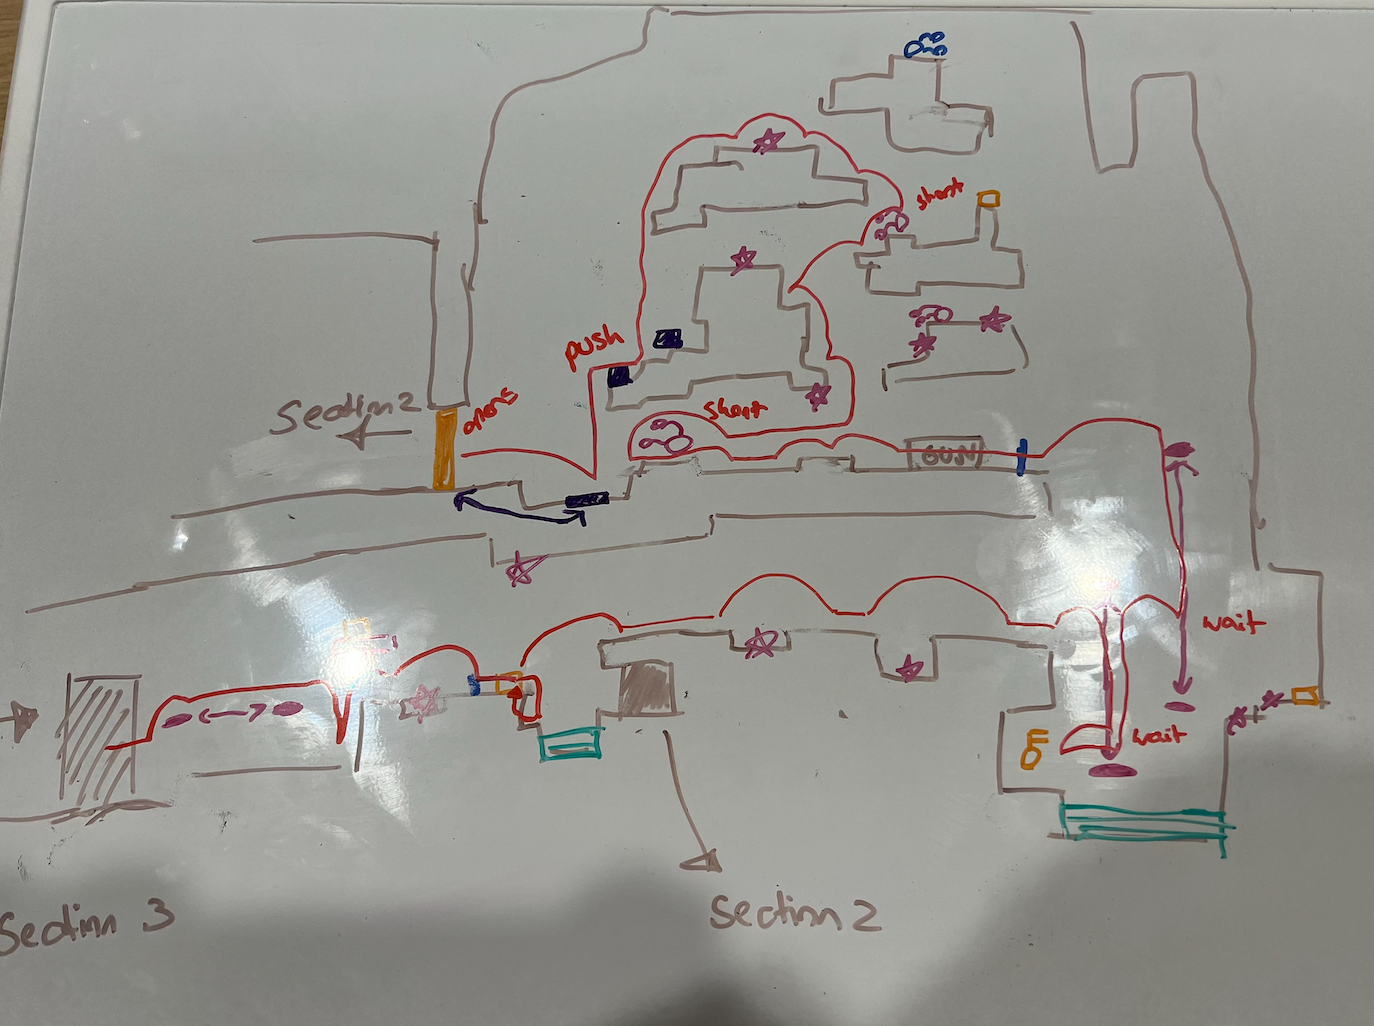 shoot
push
Section 2
opens
shoot
GUN
wait
wait
Section 3
Section 2